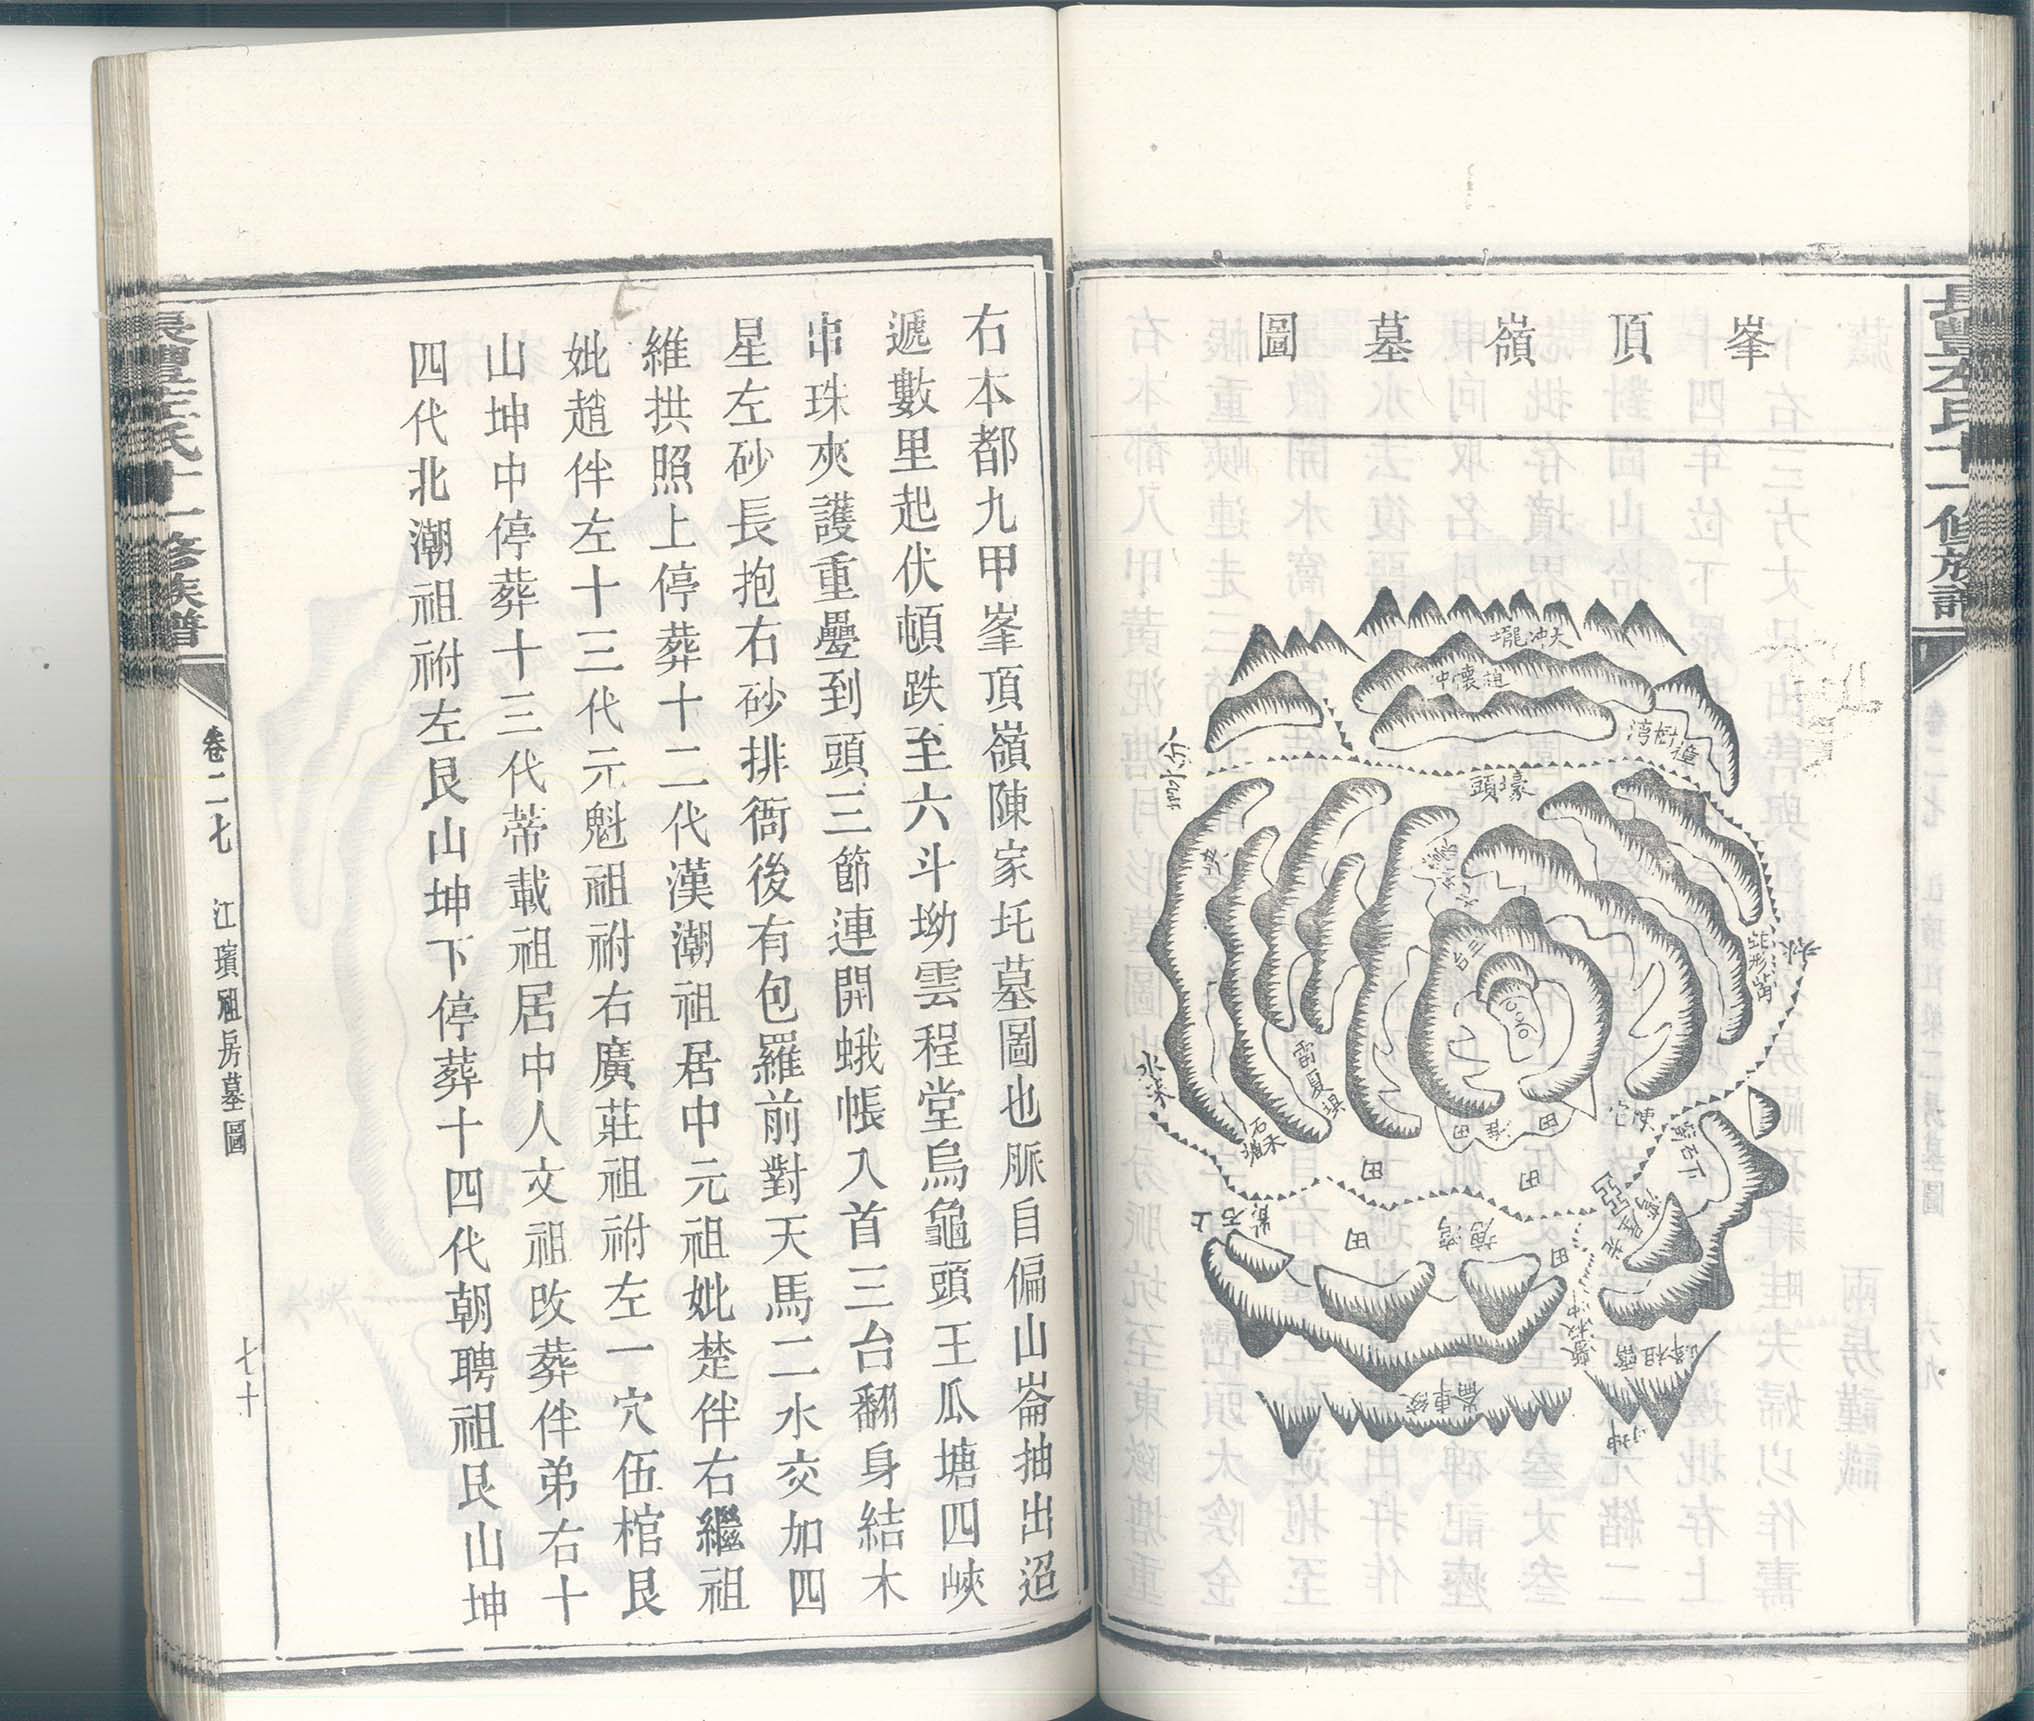 峯頂嶺墓圖
天冲龍
趙懷冲
樟樹湾
壕頭
三台
雷夏垻
石禾塘
水深
田
田
田
田
田
田
石上
下石
峰祖齋
坤山
長豐左氏十一修族譜
右本都九甲峯頂嶺陳家圫墓圖也脈自偏山崙抽出迢
遞數里起伏頓跌至六斗坳雲程堂烏龜頭王瓜塘四峽
串珠夾護重疊到頭三節連開蛾帳入首三台翻身結木
星左砂長抱右砂排衙後有包羅前對天馬二水交加四
維拱照上停葬十二代漢潮祖居中元祖妣楚伴右繼祖
妣趙伴左十三代元魁祖祔右廣莊祖祔左一穴伍棺艮
山坤中停葬十三代蒂載祖居中人文祖改葬伴弟右十
四代北潮祖祔左艮山坤下停葬十四代朝聘祖艮山坤
卷二七 江璸祖房墓圖 七十